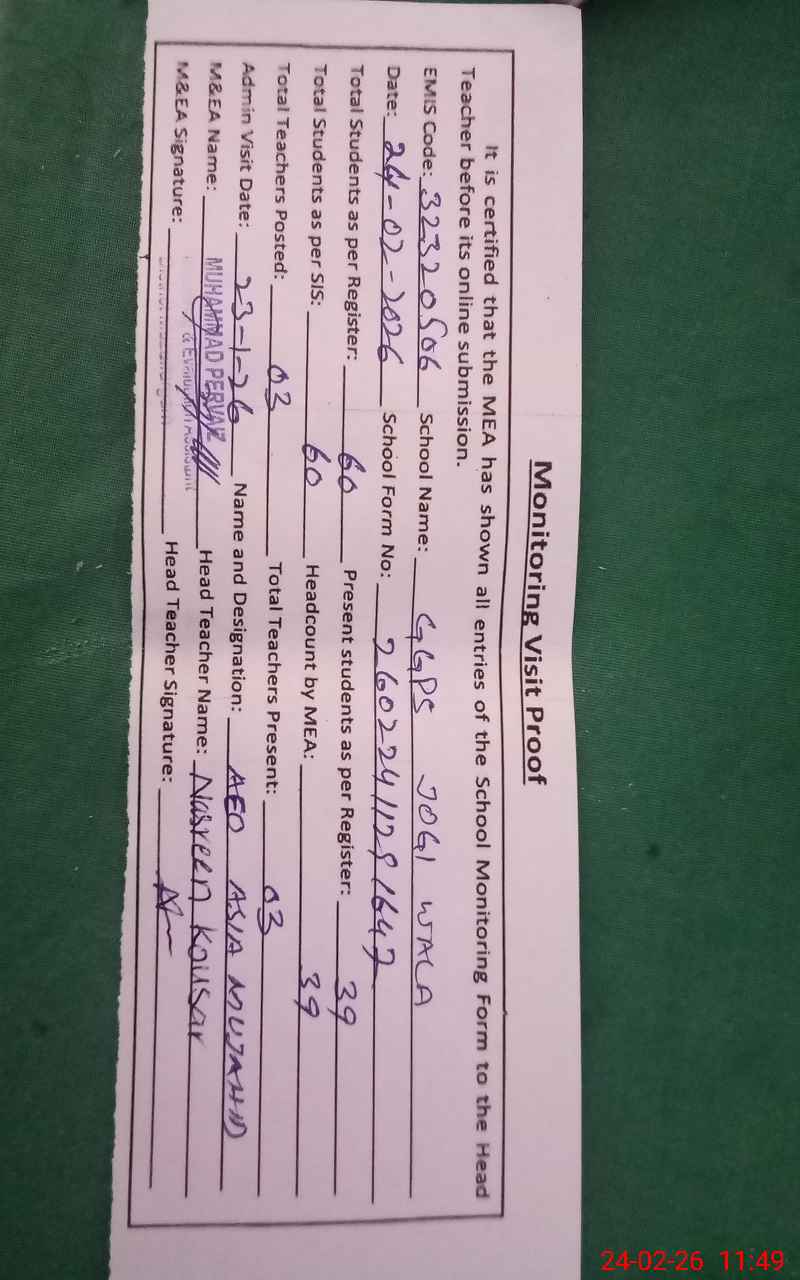 Monitoring Visit Proof
It is certified that the MEA has shown all entries of the School Monitoring Form to the Head
Teacher before its online submission.
EMIS Code: 32320506 School Name: GGPS JOGI WALA
Date: 24-02-2026 School Form No: 26022411291647
Total Students as per Register: 60 Present students as per Register: 39
Total Students as per SIS: 60 Headcount by MEA: 39
Total Teachers Posted: 03 Total Teachers Present: 03
Admin Visit Date: 23-1-26 Name and Designation: AEO ASIA MUJAHID
M&EA Name: MUHAMMAD PERVAIZ Head Teacher Name: Nasreen Kousar
M&EA Signature: Head Teacher Signature:
24-02-26 11:49